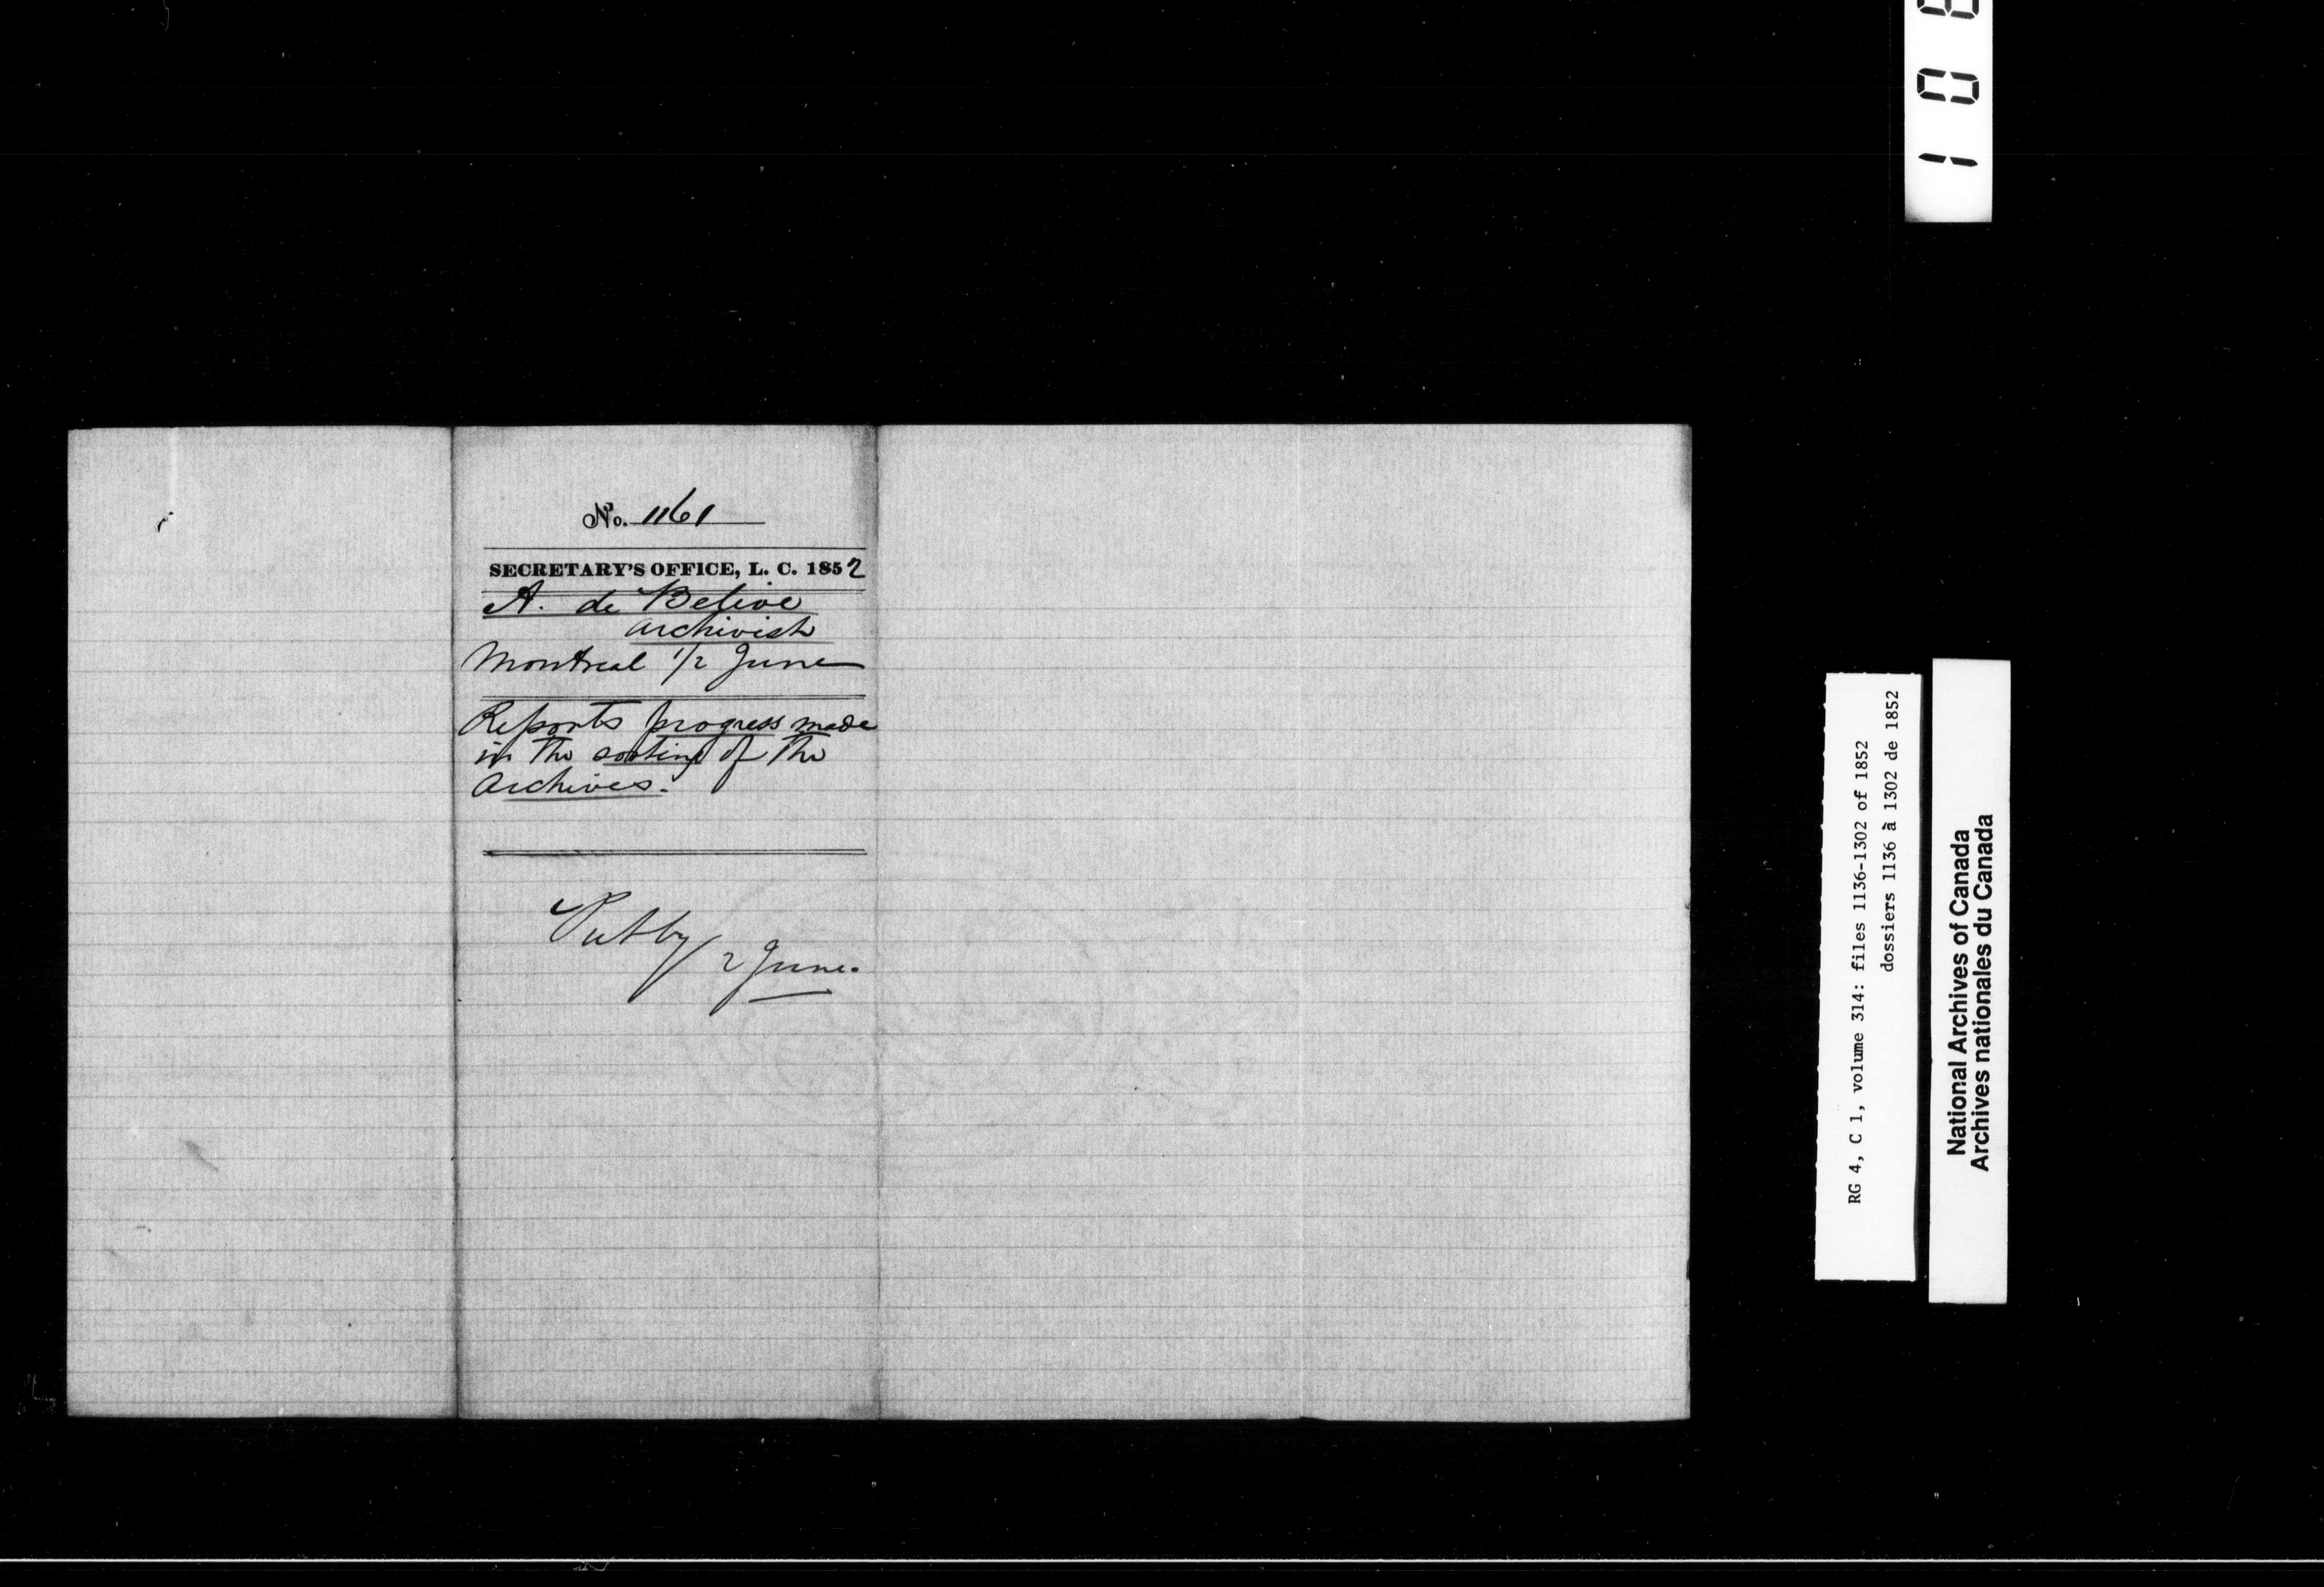 No. 1161
SECRETARY'S OFFICE, L. C. 1852
A. de Belive
Archivist
Montreal 1/2 June
Reports progress made
in the sorting of the
Archives.
Put by
2 June.
RG 4, C 1, volume 314: files 1136-1302 of 1852
dossiers 1136 à 1302 de 1852
National Archives of Canada
Archives nationales du Canada
1 0